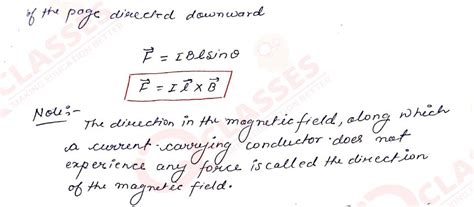 of the page directed downward
F⃗ = I B l sinθ
F⃗ = I l⃗ × B⃗
Note:-
The direction in the magnetic field, along which
a current-carrying conductor does not
experience any force is called the direction
of the magnetic field.
CLASSES
CLASSES
MAKING EDUCATION BETTER